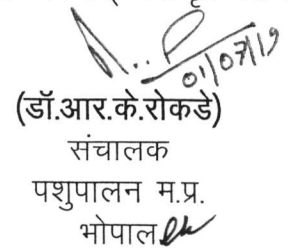 01/07/19
(डॉ.आर.के.रोकडे)
संचालक
पशुपालन म.प्र.
भोपाल